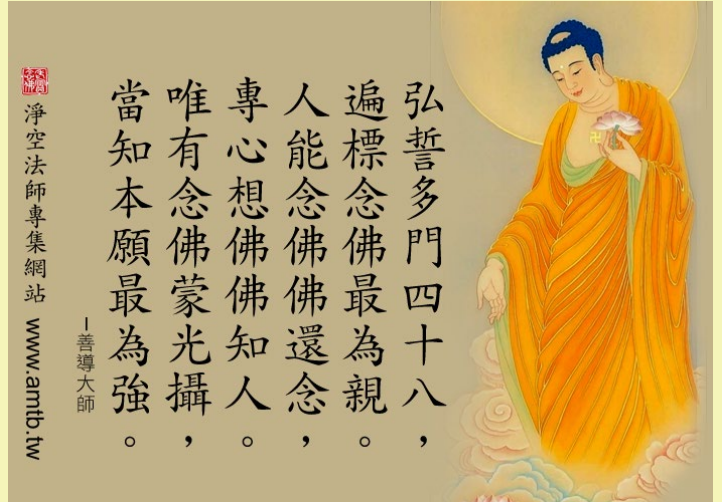 弘誓多門四十八，
遍標念佛最為親。
人能念佛佛還念，
專心想佛佛知人。
唯有念佛蒙光攝，
當知本願最為強。
－善導大師
淨空法師專集網站 www.amtb.tw